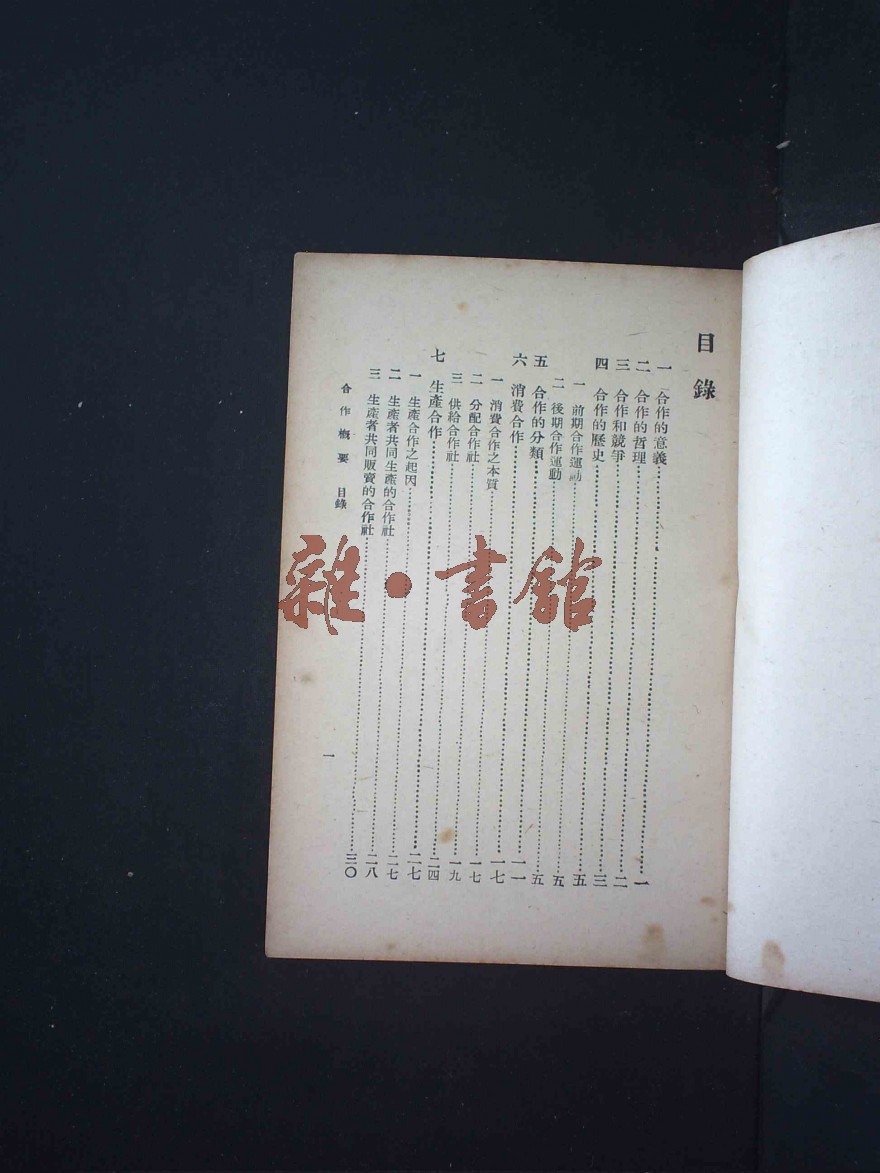 目錄
一 合作的意義……一
二 合作的哲理……二
三 合作和競爭……三
四 合作的歷史……五
一 前期合作運動……五
二 後期合作運動……五
五 合作的分類……一一
六 消費合作……一七
一 消費合作之本質……一七
二 分配合作社……一九
三 供給合作社……二四
七 生產合作……二七
一 生產合作之起因……二七
二 生產者共同生產的合作社……二八
三 生產者共同販賣的合作社……三〇
合作概要 目錄
一
雜·書館